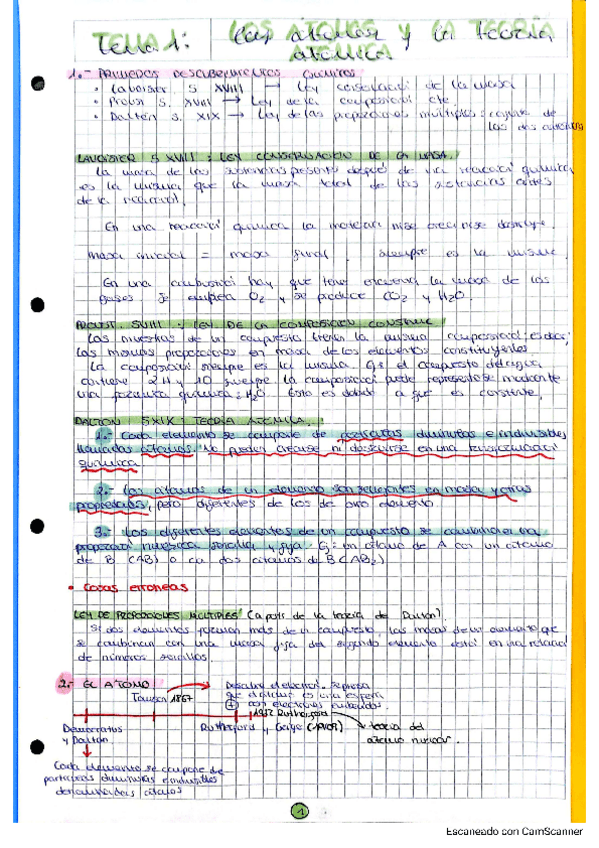 Tema 1: Los átomos y la teoría
atómica
1.- PRIMEROS DESCUBRIMIENTOS QUÍMICOS
• Lavoisier S. XVIII → Ley conservación de la masa
• Proust S. XVIII → Ley de la composición cte.
• Dalton S. XIX → Ley de las proporciones múltiples:
LAVOISIER S XVIII : LEY CONSERVACIÓN DE LA MASA.
La masa de las sustancias después de una reacción química
es la misma que la masa total de las sustancias antes
de la reacción.
En una reacción química la materia ni se crea ni se destruye.
masa inicial = masa final, siempre es la misma.
En una hay que tener la masa de los
gases. Se emplea O2 y se produce CO2 y H2O.
PROUST. SVIII : LEY DE LA COMPOSICIÓN CONSTANTE
Las muestras de un compuesto tienen la misma composición: es decir,
las mismas proporciones en masa de los elementos constituyentes.
La composición siempre es la misma. Ej: el compuesto del agua
contiene 2H y 1O siempre. La composición puede representarse mediante
una fórmula química: H2O. Esto es debido a que es constante.
DALTON SXIX TEORÍA ATÓMICA
1.- Cada elemento se compone de partículas diminutas e indivisibles
llamadas átomos. No pueden crearse ni destruirse en una
química
2.- Los átomos de un elemento son semejantes en masa y otras
propiedades, pero diferentes de los de otro elemento
3.- Los diferentes elementos de un compuesto se combinan en una
proporción numérica sencilla y fija. Ej: un átomo de A con un átomo
de B (AB) o con dos átomos de B (AB2)
• Cosas erróneas
LEY DE PROPORCIONES MÚLTIPLES (a partir de la teoría de Dalton).
Si dos elementos forman más de un compuesto, las masas de un elemento que
se combinan con una masa fija del segundo elemento están en una relación
de números sencillos.
2.- EL ATOMO
Descubre el electrón.
Tomson 1867
que el átomo es una esfera
⊕ con electrones
1932 Rutherford
Democratios
y Dalton
Rutherford y Geige
teoría del
átomo nuclear.
Cada elemento se compone de
partículas diminutas e indivisibles
denominadas átomos
1
Escaneado con CamScanner